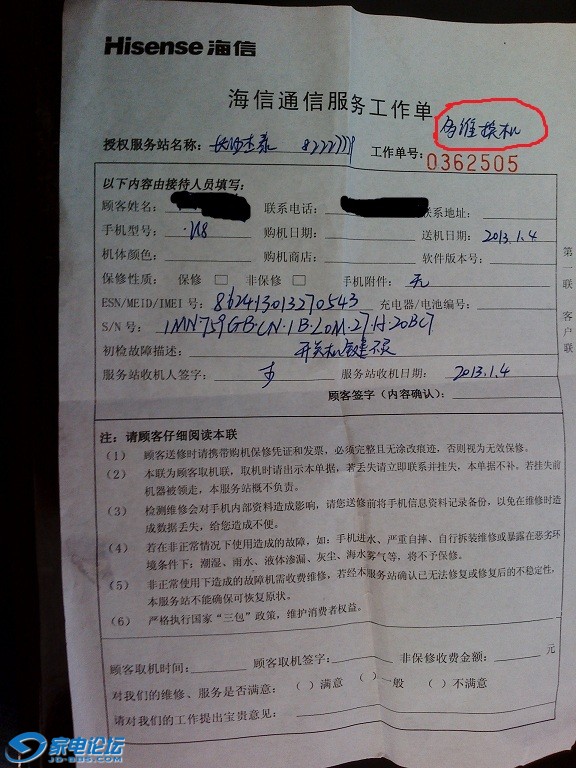 Hisense 海信
海信通信服务工作单
换机
授权服务站名称: 8222779 工作单号: 0362505
以下内容由接待人员填写:
顾客姓名: 联系电话: 联系地址:
手机型号: U8 购机日期: 送机日期: 2013.1.4
机体颜色: 购机商店: 软件版本号:
保修性质: 保修 □ 非保修 □ 手机附件: 无
ESN/MEID/IMEI 号: 862413013270543 充电器/电池编号:
S/N 号: 1MN759GB·CN·1B·L0M·27·H·20BC7
初检故障描述: 开关机键不灵
服务站收机人签字: 服务站收机日期: 2013.1.4
顾客签字(内容确认):
第一联 客户联
注: 请顾客仔细阅读本联
(1) 顾客送修时请携带购机保修凭证和发票,必须完整且无涂改痕迹,否则视为无效保修。
(2) 本联为顾客取机联,取机时请出示本单据,若丢失请立即联系并挂失,本单据不补。若挂失前
机器被领走,本服务站概不负责。
(3) 检测维修会对手机内部资料造成影响,请您送修前将手机信息资料记录备份,以免在维修时造
成数据丢失,给您造成不便。
(4) 若在非正常情况下使用造成的故障,如:手机进水、严重自摔、自行拆装维修或暴露在恶劣环
境条件下:潮湿、雨水、液体渗漏、灰尘、海水雾气等,将不予保修。
(5) 非正常使用下造成的故障机需收费维修,若经本服务站确认已无法修复或修复后的不稳定性,
本服务站不能确保可恢复原状。
(6) 严格执行国家“三包”政策,维护消费者权益。
顾客取机时间: 顾客取机签字: 非保修收费金额: 元
对我们的维修、服务是否满意: ( ) 满意 ( ) 一般 ( ) 不满意
请对我们的工作提出宝贵意见:
家电论坛
JD-BBS.COM